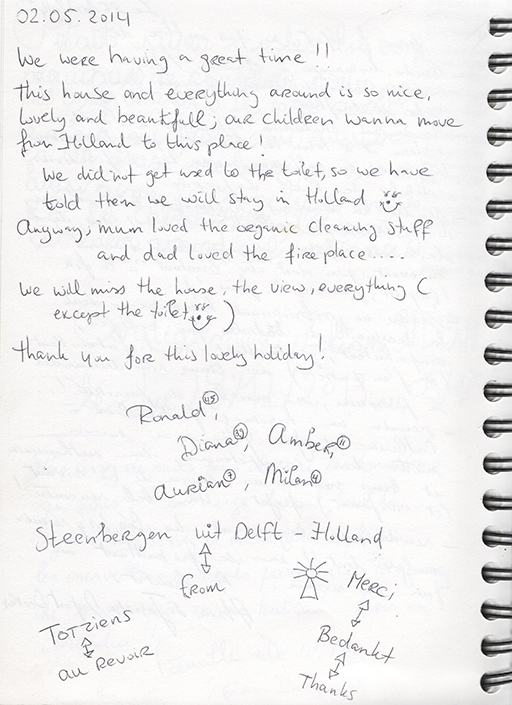 02.05.2014
We were having a great time!!
This house and everything around is so nice,
lovely and beautifull; our children wanna move
from Holland to this place!
We did not get used to the toilet, so we have
told them we will stay in Holland
Anyway; mum loved the organic cleaning stuff
and dad loved the fireplace....
We will miss the house, the view, everything (
except the toilet )
Thank you fore this lovely holiday!
Ronald 45,
Diana, Amber, 11
Aurian 7, Milan 4
Steenbergen uit Delft - Holland
from
Merci
Totziens
Bedankt
au Revoir
Thanks